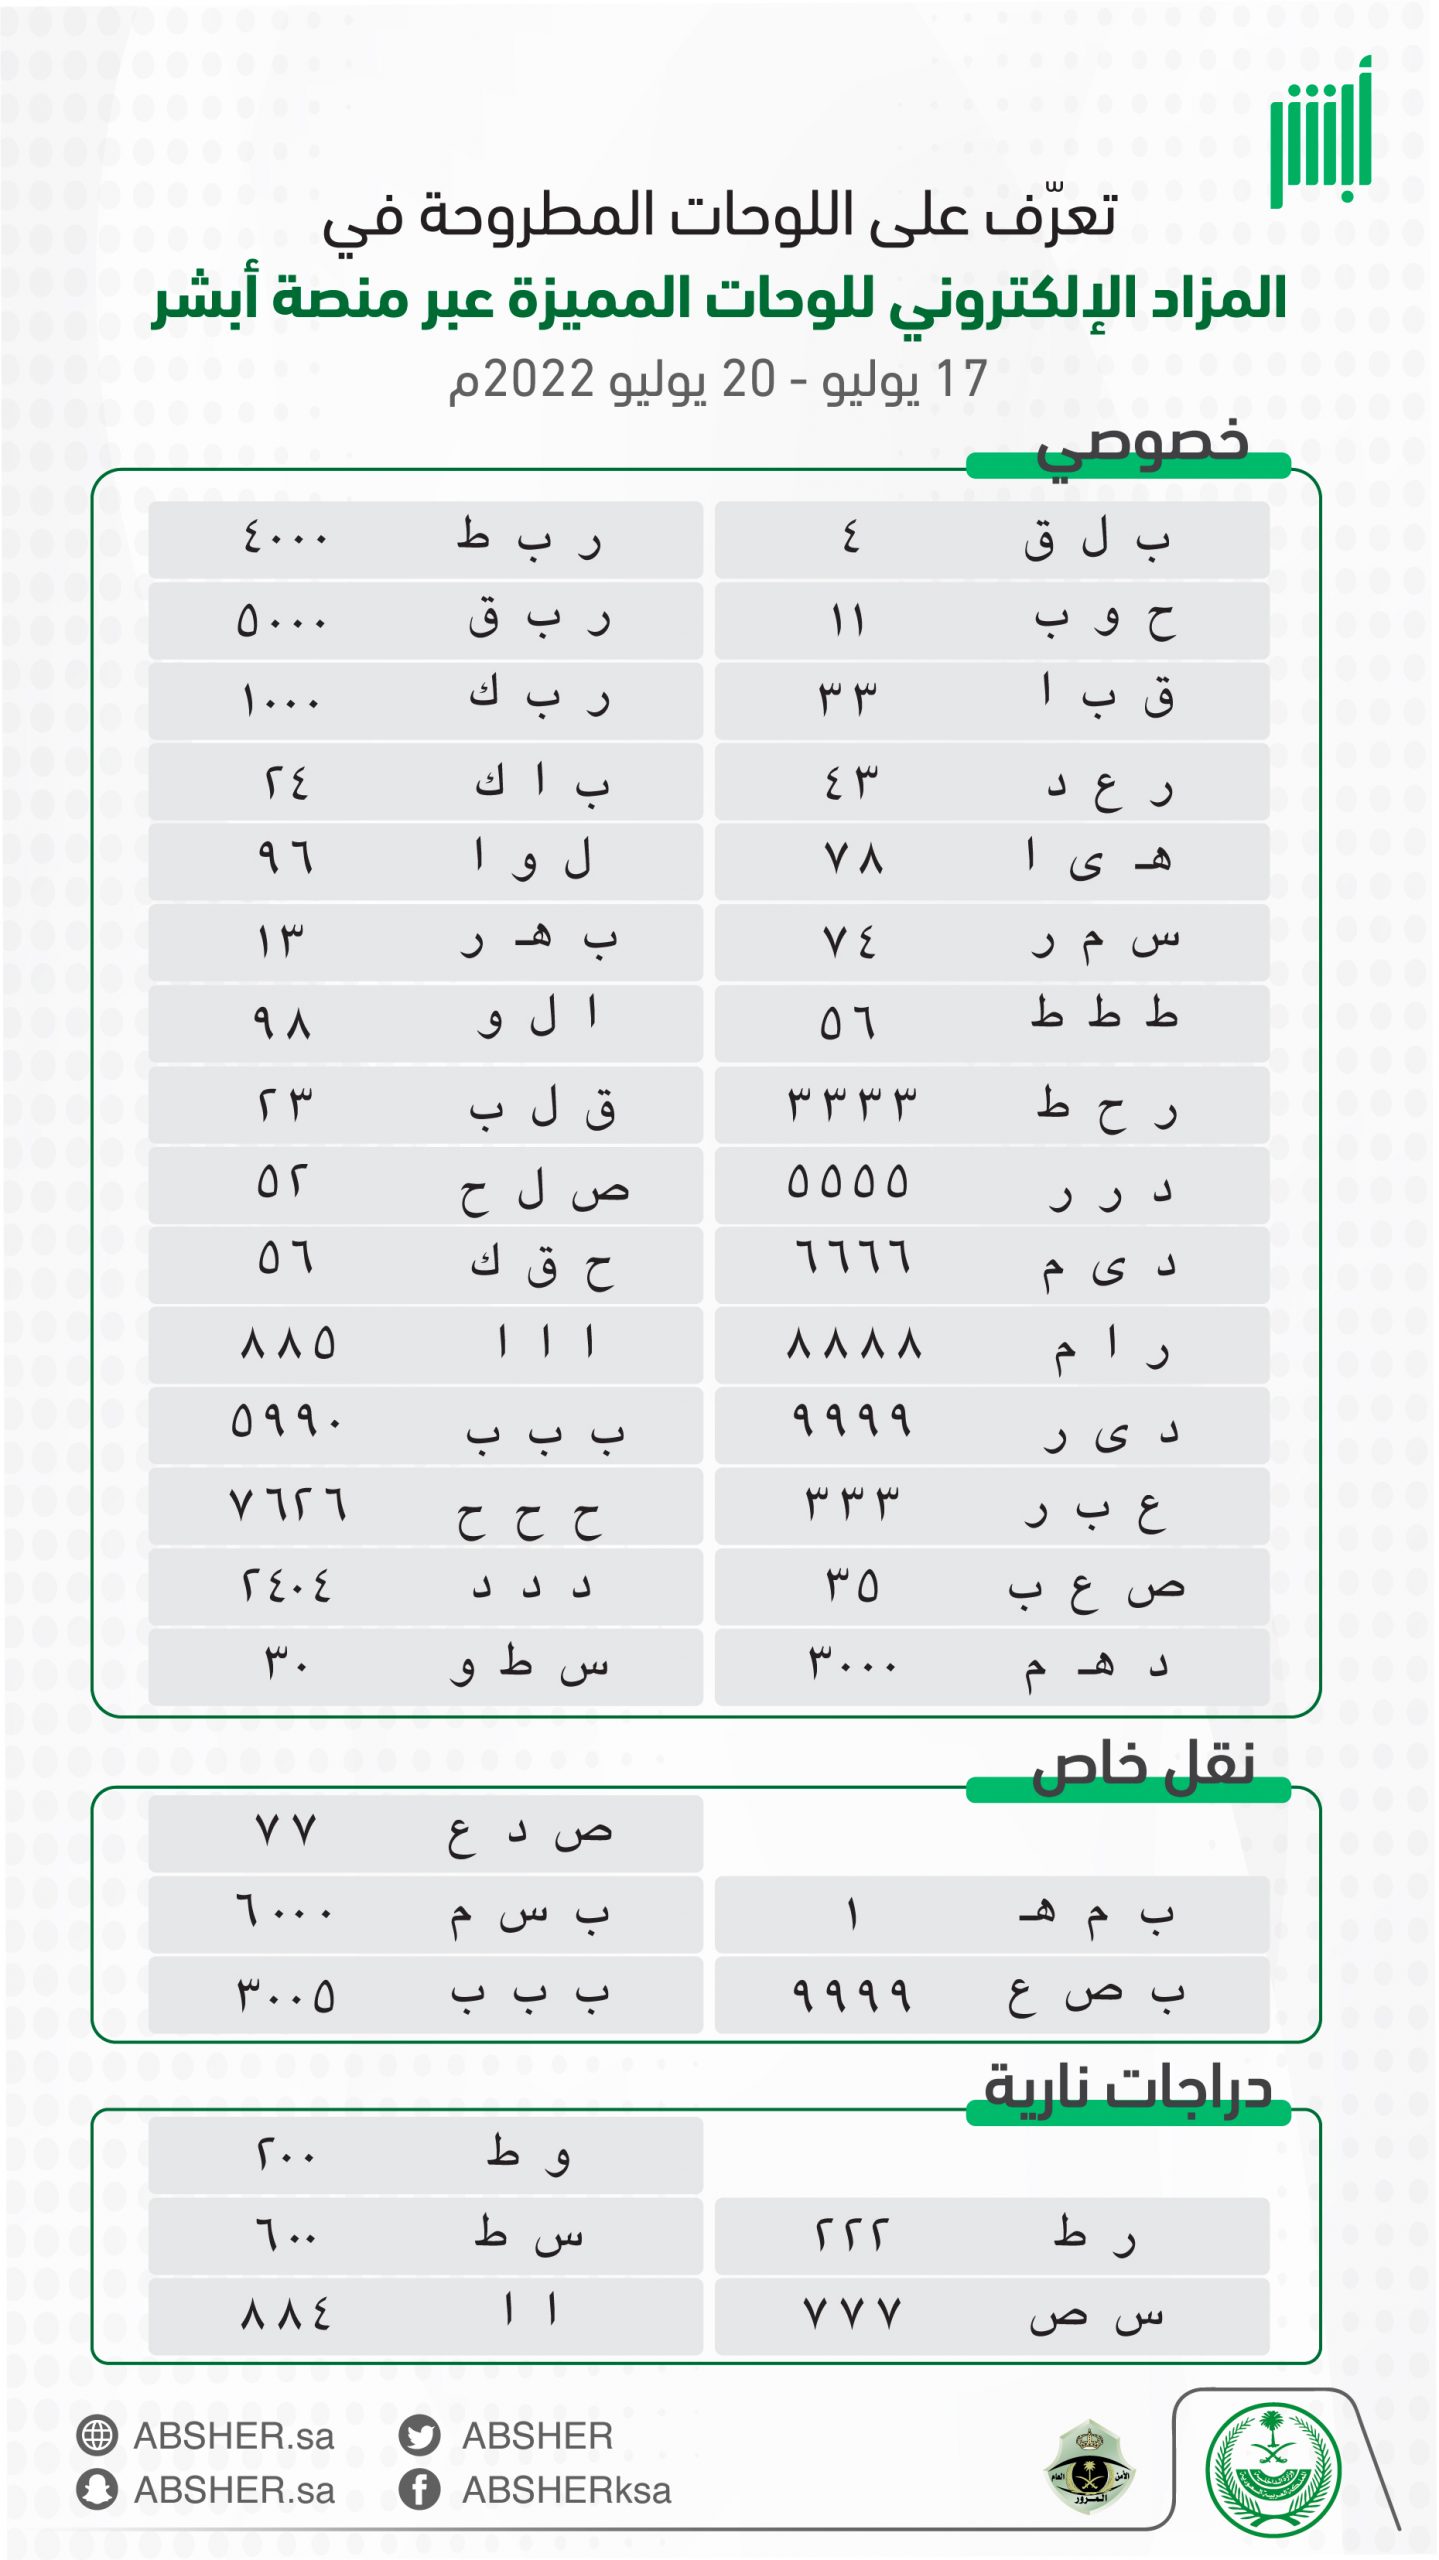 أبشر
تعرّف على اللوحات المطروحة في
المزاد الإلكتروني للوحات المميزة عبر منصة أبشر
17 يوليو - 20 يوليو 2022م
خصوصي
ب ل ق ٤ ر ب ط ٤٠٠٠
ح و ب ١١ ر ب ق ٥٠٠٠
ق ب ا ٣٣ ر ب ك ١٠٠٠
ر ع د ٤٣ ب ا ك ٢٤
هـ ى ا ٧٨ ل و ا ٩٦
س م ر ٧٤ ب هـ ر ١٣
ط ط ط ٥٦ ا ل و ٩٨
ر ح ط ٣٣٣٣ ق ل ب ٢٣
د ر ر ٥٥٥٥ ص ل ح ٥٢
د ى م ٦٦٦٦ ح ق ك ٥٦
ر ا م ٨٨٨٨ ا ا ا ٨٨٥
د ى ر ٩٩٩٩ ب ب ب ٥٩٩٠
ع ب ر ٣٣٣ ح ح ح ٧٦٢٦
ص ع ب ٣٥ د د د ٢٤٠٤
د هـ م ٣٠٠٠ س ط و ٣٠
نقل خاص
ص د ع ٧٧
ب م هـ ١ ب س م ٦٠٠٠
ب ص ع ٩٩٩٩ ب ب ب ٣٠٠٥
دراجات نارية
و ط ٢٠٠
ر ط ٢٢٢ س ط ٦٠٠
س ص ٧٧٧ ا ا ٨٨٤
ABSHER.sa ABSHER
ABSHER.sa ABSHERksa
الأمن العام
المرور